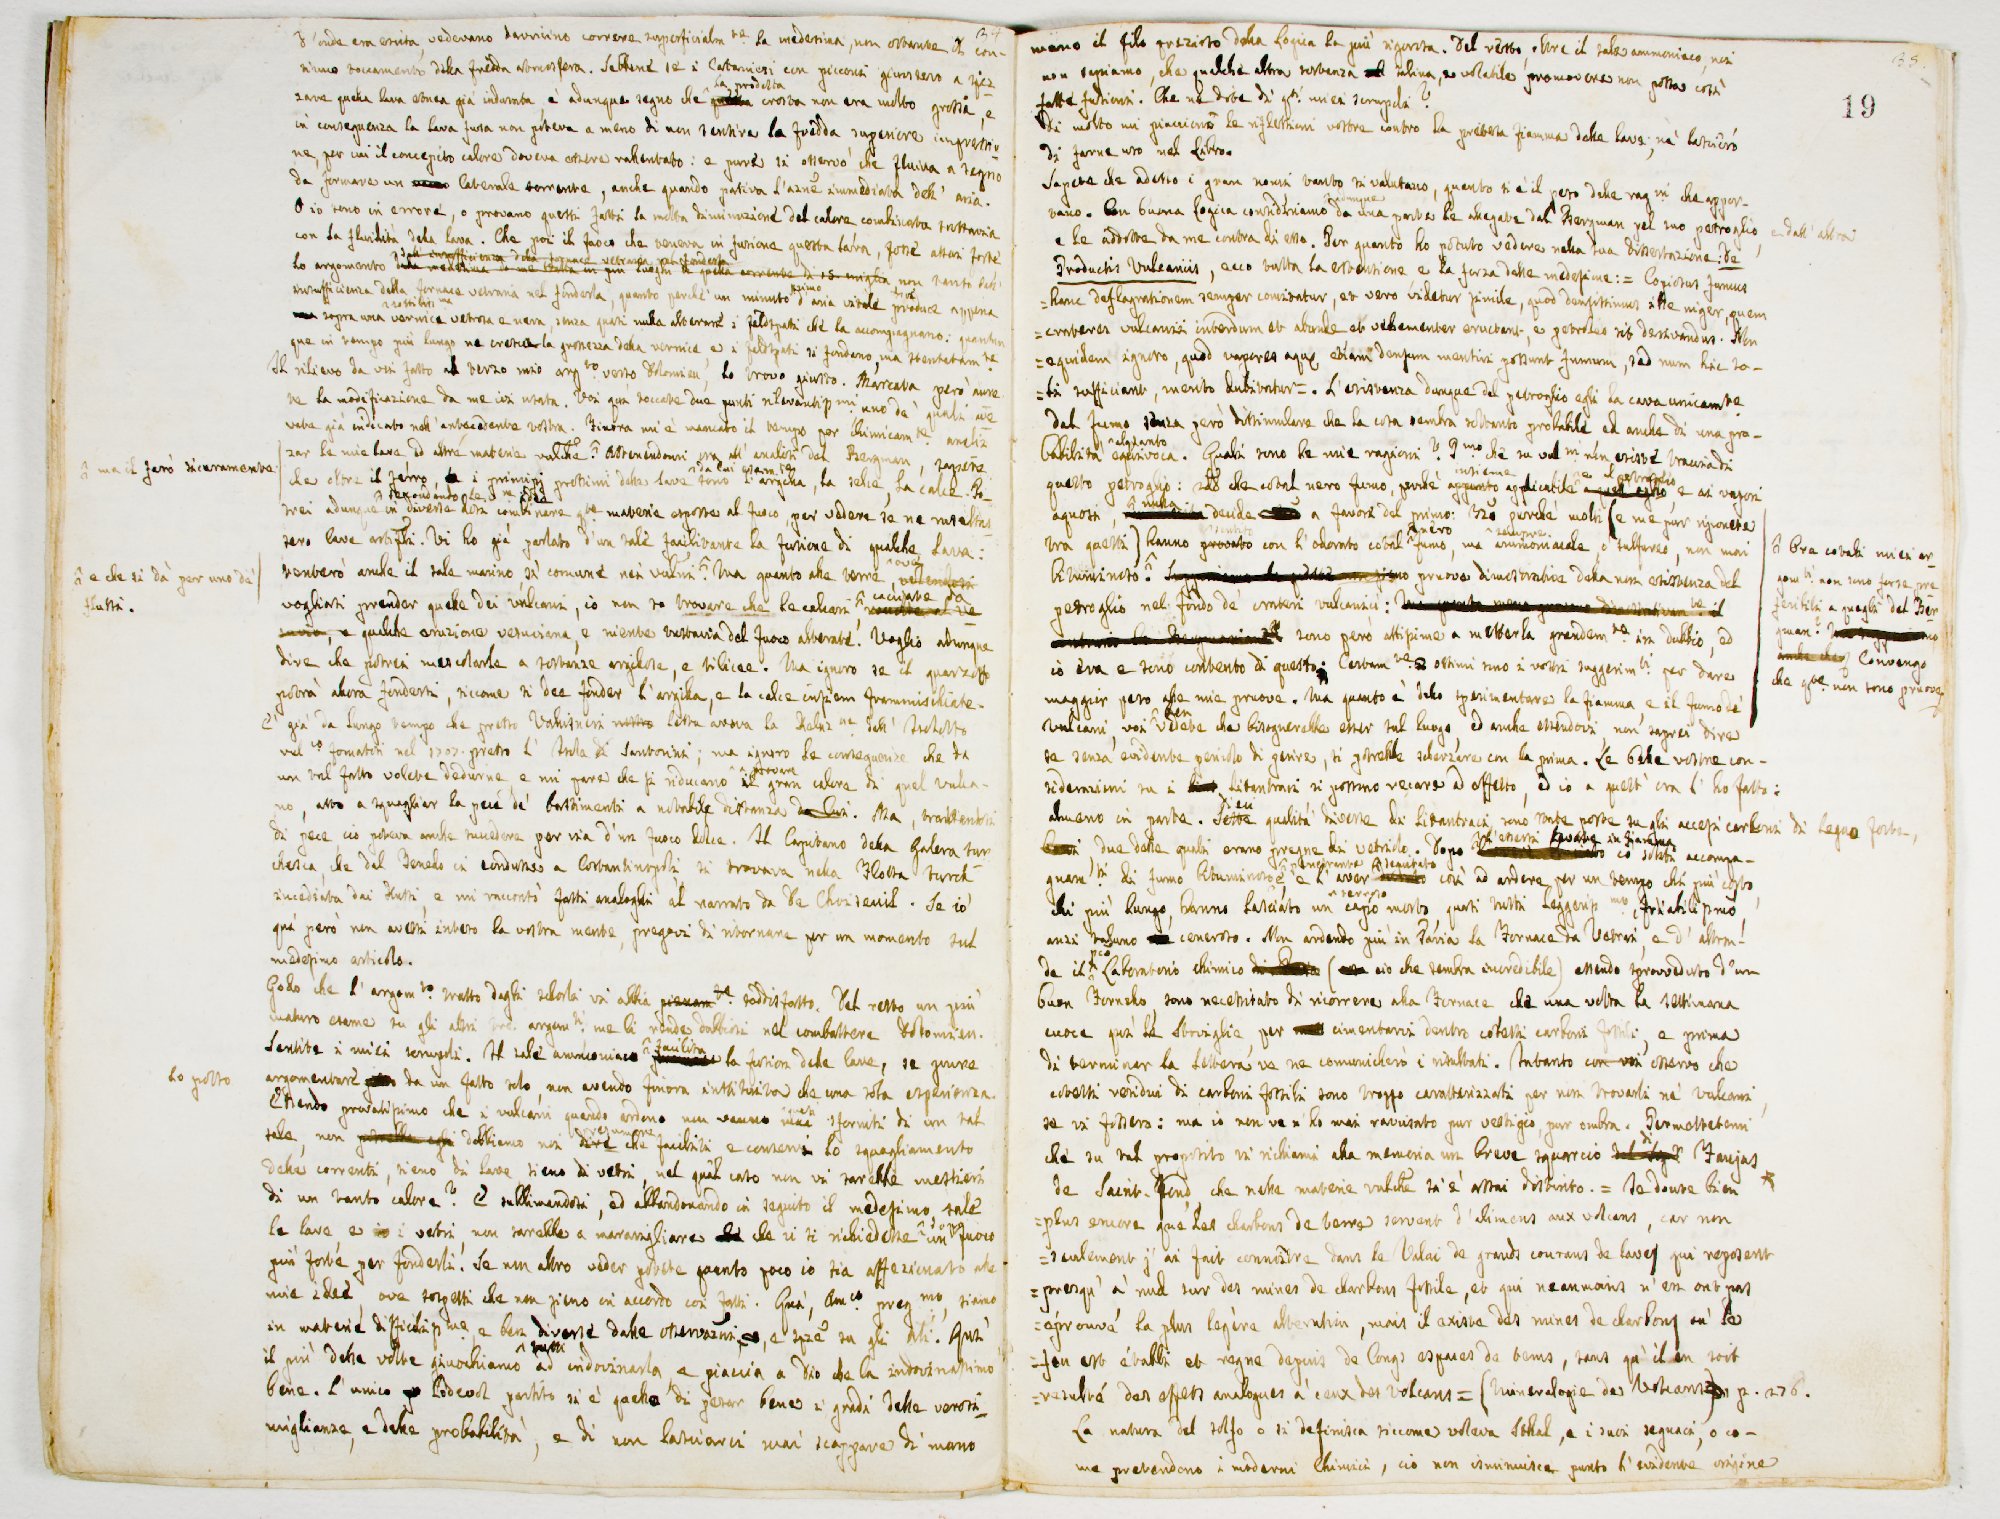 34
d'onde era escita, vedevano davvicino correre superficialm.te la medesima, non ostante il con-
tinuo toccamento della fredda atmosfera. Sebbene se i Catanesi con picconi giunsero a spez-
zare quella lava etnea già indurata, è adunque segno che la predetta crosta non era molto grossa, e
in conseguenza la lava fusa non poteva a meno di non sentire la fredda superiore impressio-
ne, per cui il concepito calore doveva essere rallentato: e pure si osservò che fluiva a segno
da formare un laterale torrente, anche quando pativa l'azne immediata dell'aria.
O io sono in errore, o provano questi fatti la molta diminuzione del calore combinata tuttavia
con la fluidità della lava. Che poi il fuoco che teneva in fusione questa lava, fosse assai forte
lo argomento non tanto dall'
insufficienza della fornace vetraria nel fonderla, quanto perchè un minuto primo d'aria vitale produce appena
sopra una vernice vetrosa e nera, senza quasi nulla alterare i feldspati che la accompagnano: quantun
que in tempo più lungo ne cresca la grossezza della vernice e i feldspati si fondano, ma stentatam.te
Il rilievo da voi fatto al terzo mio arg.to verso Dolomieu, lo trovo giusto. Marcata però aure-
te la modificazione da me ivi usata. Voi qui toccate due punti rilevantissmi uno de' quali ave
vate già indicato nell'antecedente vostra. Finora mi è mancato il tempo per chimicam.te analiz
zar le mie lave ed altre materie vulche. Attenendomi ora all'analisi del Bergman, sapete
^ ma il farò sicuramente
che oltre il ferro, i principj prossimi delle lave sono da lui l'argilla, la selce, la calce. Po-
trei adunque secondando le in diverse dosi combinare q.te materie esposte al fuoco, per vedere se ne risultas
sero lave artifli. Vi ho già parlato d'un sale facilitante la fusione di qualche lava:
tenterò anche il sale marino sì comune nei vulni ^. Ma quanto alle terre, ove
^ e che si dà per uno de'
flussi.
vogliasi prender quelle dei vulcani, io non so trovare che le calcari cacciate da
, e qualche eruzione vesuviana, e niente tuttavia dal fuoco alterate. Voglio adunque
dire che potrei mescolarle a sostanze argillose, e silicee. Ma ignoro se il quarzo
potrà allora fondersi, siccome si dee fonder l'argilla, e la calce insiem frammischiate.
E' già da lungo tempo che presso Valisneri letta aveva la Relaz.ne dell'Isoletta
vul.co formatasi nel 1707. presso l'Isola di Santorini; ma ignoro le conseguenze che da
un tal fatto volete dedurne e mi pare che si riducano a provare il gran calore di quel vulca-
no, atto a squagliar la pece de' bastimenti a notabile distanza da lui. Ma, trattandosi
di pece, ciò poteva anche succedere per via d'un fuoco dolce. Il Capitano della Galera tur
chesca che dal Tenedo ci condusse a Costantinopoli si trovava nella Flotta turch
incediata dai Russi, e mi raccontò fatti analoghi al narrato da De Choiseuil. Se io
quì però non avessi inteso la vostra mente, pregovi di ritornare per un momento sul
medesimo articolo.
Godo che l'argom.to tratto dagli scherli vi abbia pienam.te soddisfatto. Del resto un più
maturo esame su gli altri tre argom.ti me li rende dubbiosi nel combattere Dolomieu.
Sentite i miei scrupoli. Il sale ammoniaco facilita la fusion delle lave, se pure
lo posso
argomentare da un fatto solo, non avendo finora instituita che una sola esperienza.
Essendo provatissimo che i vulcani quando ardono non vanno mai sforniti di un tal
sale, non dobbiamo noi presumere che faciliti e conservi lo squagliamento
delle correnti, sieno di lave sieno di vetri, nel qual caso non vi sarebbe mestieri
di un tanto calore? E sublimandosi, ed abbandonando in seguito il medesimo sale
le lave, e i vetri, non sarebbe a maravigliare che vi si richiedesse un fuoco
più forte per fonderli. Se non altro veder potete quanto poco io sia affezionato alle
mie idee, ove sospetti che non sieno in accordo coi fatti. Quà, Am.co preg.mo, siamo
in materie difficilissme, e ben diverse dalle osservazni, e spze su gli Ali. Quì
il più delle volte giuochiamo quasi ad indovinarla, e piaccia a Dio che la indovinassimo
bene. L'unico lodevol partito si è quello di pesar bene i gradi delle verosi-
miglianze, e delle probabilità, e di non lasciarci mai scappare di mano
35.
19
mano il filo prezioso della Logica la più rigorosa. Del resto, oltre il sale ammoniaco, noi
non sappiamo, che qualche altra sostanza salina, e volatile promovere non possa così
fatte fusioni. Che ne dite di q.ti miei scrupoli?
Di molto mi piacciono le riflessioni vostre contro la pretesa fiamma delle lave; nè lascierò
di farne uso nel Libro.
Sapete che adesso i gran nomi tanto si valutano, quanto si è il peso delle rag.ni che appor-
tano. Con buona logica consideriamo adunque da una parte le allegate dal Bergman pel suo petroglio, e dall'altra
e le addotte da me contra di esso. Per quanto ho potuto vedere nella sua Dissertazione: De
Productis Vulcaniis, ecco tutta la estensione e la forza delle medesime: = Copiosus fumus
= hanc deflagrationem semper comitatur, et vero videtur simile, quod densissimus ille niger, quem
= crateres vulcanici interdum et abunde et vehementer eructant, e petroleo sit derivandus. Non
= equidem ignoro, quod vapores aquæ etiam densum mentiri possunt fumum, sed num hic to-
= ti sufficiant, merito dubitatur =. L'esistenza dunque del petroglio egli la cava unicamte
dal fumo senza però dissimulare che la cosa sembra soltanto probabile ed anche di una pro-
babilità alquanto equivoca. Quali sono le mie ragioni? P.mo che su vul.ni non esiste traccia di
questo petroglio: 2do che cotal nero fumo, perchè insieme applicabile al petroglio, e ai vapori
aquosi, nulla decide a favore del primo: 3zo perchè molti (e me pur riponete
tra questi) hanno sentito con l'odorato cotal nero fumo, ma sempre ammoniacale, o sulfureo, non mai
bituminoso ^. pruove dimostrative della non esistenza del
petroglio nel fondo de' crateri vulcanici:
sono però attissime a metterla grandem.te in dubbio, ed
io era e sono contento di questo. Certam.te ottimi sono i vostri suggerim.ti per dare
^ Ora cotali miei ar-
gom.ti non sono forse pre
feribili a quegli del Ber
gman?
Convengo
che q.te non sono pruove
maggior peso alle mie pruove. Ma quanto è dello sperimentare la fiamma e il fumo de'
vulcani, voi ben vedete che bisognerebbe esser sul luogo, ed anche essendovi, non saprei dire
se senza evidente pericolo di perire, si potrebbe scherzare con la prima. Le belle vostre con-
siderazioni su i Litantraci si possono recare ad effetto, ed io a quest'ora l'ho fatto:
almeno in parte. Dieci qualità diverse di Litantraci sono state poste su gli accesi carboni di legno forte,
, due delle quali erano pregne di vetriolo. Dopo l'essersi levate in fiamma ciò soltà accompa-
gnam.ti di fumo bituminoso, e l'aver seguitato così ad ardere per un tempo chi più corto
chi più lungo, hanno lasciato un capo morto, quasi tutti leggerissmo, friabilissmo,
anzi taluno ceneroso. Non ardendo più in Pavia la Fornace da Vetrai, e d'altron-
de il pco Laboratorio chimico (ciò che sembra incredibile) essendo sprovveduto d'un
buon Fornello, sono necessitato di ricorrere alla Fornace che una volta la settimana
cuoce quì le stoviglie, per cimentarvi dentro cotesti carboni fossili, e prima
di terminar la lettera ve ne comunicherò i risultati. Intanto con voi osservo che
cotesti residui di carboni fossili sono troppo caratterizzati per non trovarli nè vulcani,
se vi fossero: ma io non ve n'ho mai ravvisato pur vestigio, pur ombra. Permettetemi
che su tal proposito vi richiami alla memoria un breve squarcio di Faujas
de Saint-Fond, che nelle materie vulche si è assai distinto. = Je doute bien
= plus encore que les charbons de terre servent d'alimens aux volcans, car non
= seulement j'ai fait connoitre dans le Velai de grands courans de laves qui reposent
= presqu'à nud sur des mines de charbons fossile, et qui neanmoins n'en ont pas
= éprouvé la plus legère alteration, mais il existe des mines de charbons où le
= feu est établi et regne depuis de longs espaces de tems, sans qu'il en soit
= resulté des effets analogues à ceux des volcans = (Mineralogie des Volcans p. 276.
La natura del solfo o si definisca siccome voleva Sthal, e i suoi seguaci, o co-
me pretendono i moderni Chimici, ciò non isminuisce punto l'evidente origine